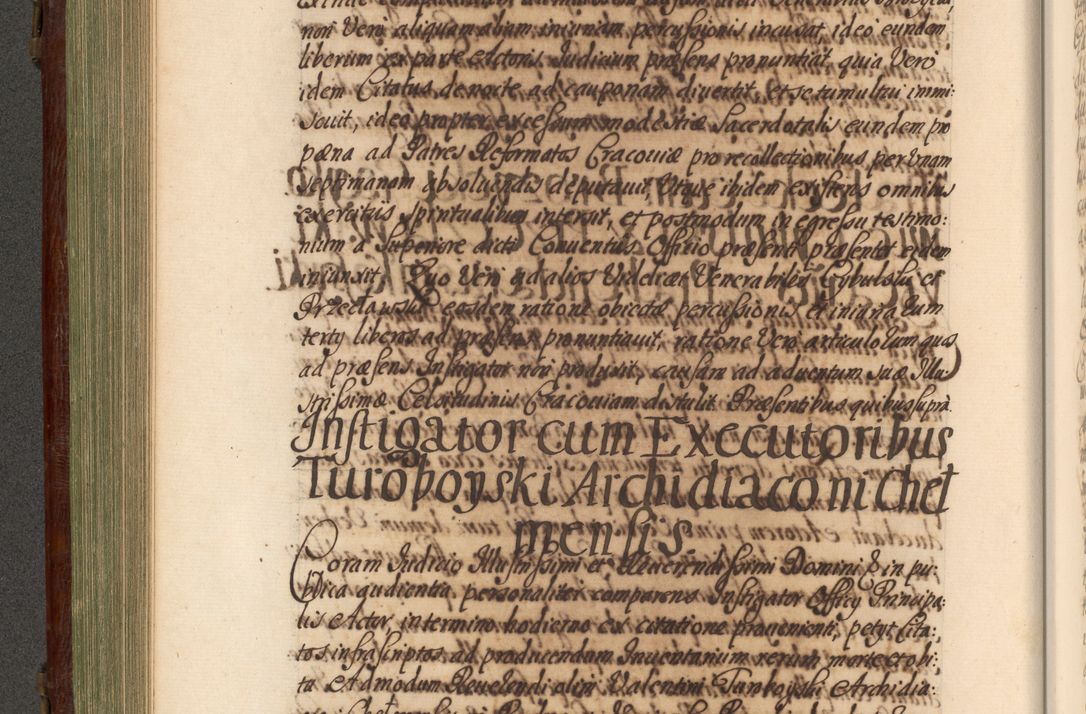 non Vero aliquam aliam iniuriam percussionis incusat, ideo eundem
liberum ex parte Actoris Judicium præsens pronuntiat, quia Vero
idem Citatus de nocte ad cauponam divertit, et se tumultui immi:
scuit, ideo propter excessum modestiæ Sacerdotalis eundem pro
pæna ad Patres Reformatos Cracoviæ pro recollectionibus per Unam
septimanam absoluendis deputauit, Utque ibidem existens omnibus
exercitiis spiritualibus intersit, et postmodum in egressu testimo:
nium a Superiore dicti Conuentus Officio præsenti præsentet eidem
iniunxit. Quo Vero ad alios Videlicet Venerabiles Cybulski et
Przecławski eosdem ratione obiectæ percussionis et iniuria tum
terty liberos ad præsens pronuntiauit, ratione Vero articulorum quos
ad præsens Instigator non produxit, causam ad aduentum suæ Illu:
strissimæ Celsitudinis Cracouiam distulit. Præsentibus quibus supra.
Instigator cum Executoribus
Turoboyski Archidiaconi Cheł
mensis.
Coram Judicio Illustrissimi et Reuerendissimi Domini in pu:
blica audientia personaliter comparens Instigator Officy Principa:
lis Actor, in termino hodierno ex citatione prouenienti, petyt Cita:
tos infrascriptos ad producendum Inuentarium rerum morte et obi:
tu Admodum Reuerendi olim Valentini Turoboyski Archidia: